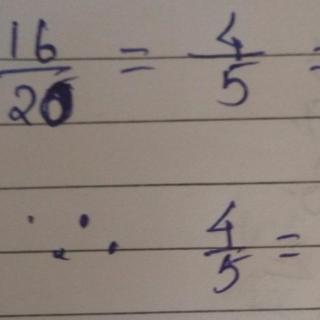 16/20 = 4/5 =
∴ 4/5 =